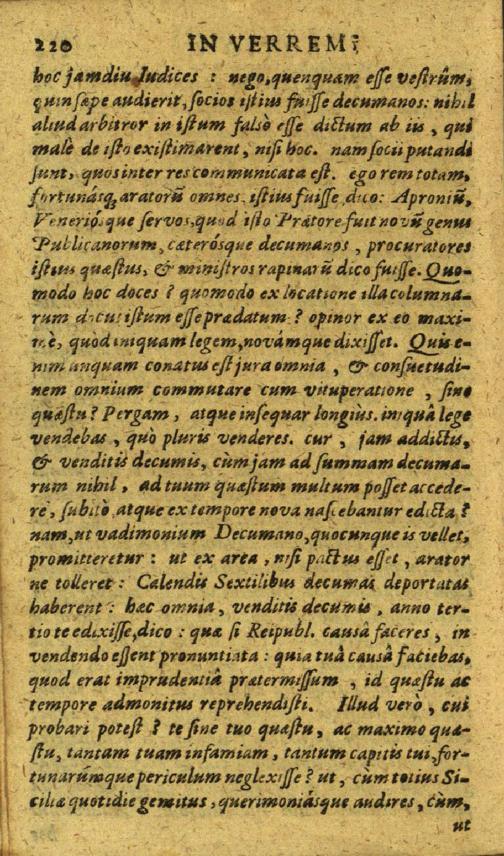 220 IN VERREM;
hoc jamdiu Iudices : nego, quenquam esse vestrûm,
quin sæpe audierit, socios istius fuisse decumanos: nihil
aliud arbitror in istum falsò esse dictum ab iis, qui
malè de isto existimarent, nisi hoc. nam socii putandi
sunt, quos inter res communicata est. ego rem totam,
fortunásq; aratorũ omnes istius fuisse dico: Aproniũ,
Veneriósque servos, quod isto Prætore fuit novũ genus
Publicanorum, cæterósque decumanos, procuratores
istius quæstus, & ministros rapinarũ dico fuisse. Quo-
modo hoc doces ? quomodo ex locatione illa columna-
rum docui istum esse prædatum ? opinor ex eo maxi-
mè, quòd iniquam legem, novámque dixisset. Quis e-
nim unquam conatus est jura omnia, & consuetudi-
nem omnium commutare cum vituperatione, sine
quæstu ? Pergam, atque insequar longiùs. iniquâ lege
vendebas, quò pluris venderes. cur, jam addictis,
& venditis decumis, cùm jam ad summam decuma-
rum nihil, ad tuum quæstum multum posset accede-
re, subitò atque ex tempore nova nascebantur edicta ?
nam, ut vadimonium Decumano, quocunque is vellet,
promitteretur : ut ex area, nisi pactus esset, arator
ne tolleret : Calendis Sextilibus decumas deportatas
haberent : hæc omnia, venditis decumis, anno ter-
tio te edixisse, dico : quæ si Reipubl. causâ faceres, in
vendendo essent pronuntiata : quia tuâ causâ faciebas,
quod erat imprudentiâ prætermissum, id quæstu ac
tempore admonitus reprehendisti. Illud verò, cui
probari potest ? te sine tuo quæstu, ac maximo quæ-
stu, tantam tuam infamiam, tantum capitis tui, for-
tunarúmque periculum neglexisse ? ut, cùm totius Si-
ciliæ quotidie gemitus, querimoniásque audires, cùm,
ut